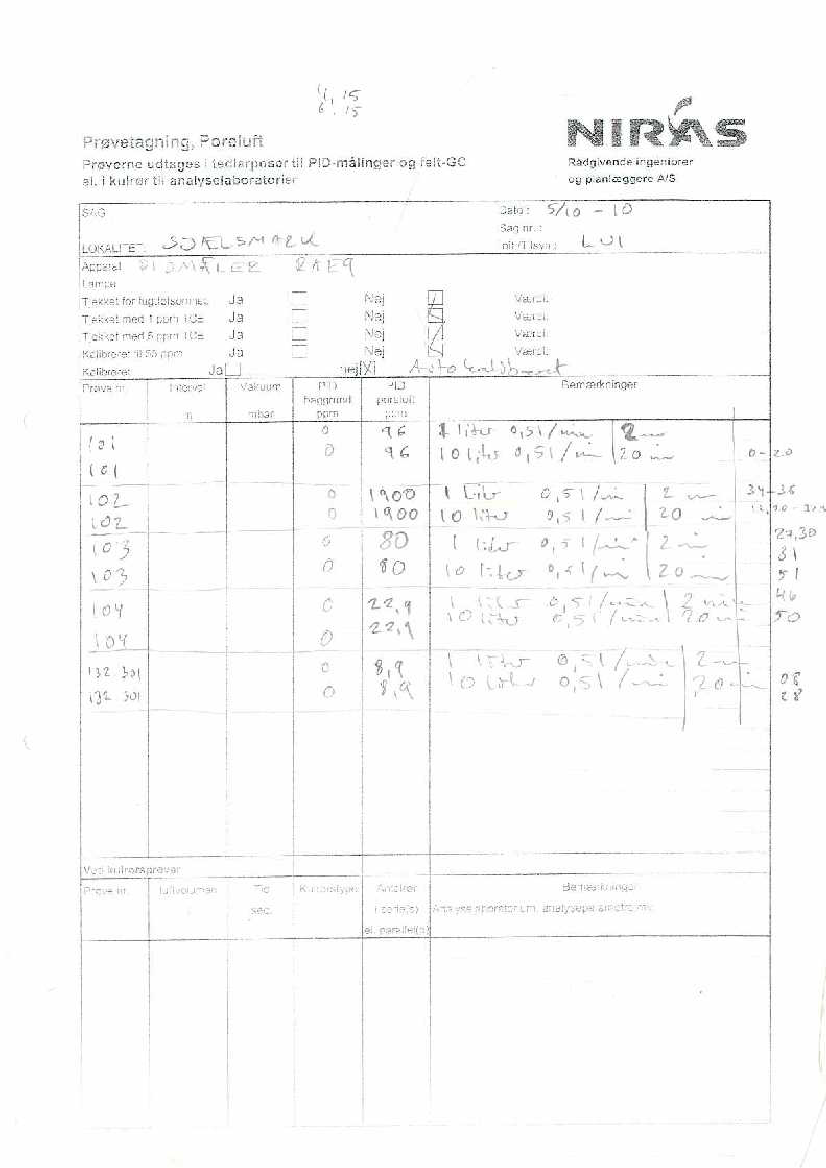 4.15
6.15
Prøvetagning, Poreluft
Prøverne udtages i tedlarposer til PID-målinger og felt-GC
el. i kulrør til analyselaboratorier
NIRAS
Rådgivende ingeniører
og planlæggere A/S
SAG
Dato: 5/10 - 10
Sag nr.:
LOKALITET: SJÆLSMARK
Init/Tilsyn: LUI
Apparat PIDMÅLER RAE9
Lampe
Tjekket for fugtfølsomhed Ja Nej Værdi:
Tjekket med 1 ppm TCE Ja Nej Værdi:
Tjekket med 5 ppm TCE Ja Nej Værdi:
Kalibreret til 55 ppm Ja Nej
Kalibreret Ja nej X Auto kalibreret
Prøve nr. Interval Vakuum PID PID Bemærkninger
baggrund poreluft
m mbar ppm ppm
101 0 96 1 liter 0,5 l/min 2
101 0 96 10 liter 0,5 l/min 20 min 0-20
102 0 1900 1 liter 0,5 l/min 2 min 34-36
102 0 1900 10 liter 0,5 l/min 20 min
103 0 80 1 liter 0,5 l/min 2 min 27,30
31
103 0 80 10 liter 0,5 l/min 20 min 51
104 0 22,9 1 liter 0,5 l/min 2 min 46
104 0 22,9 10 liter 0,5 l/min 20 min 50
132 301 0 8,9 1 liter 0,5 l/min 2 min
132 301 0 8,9 10 liter 0,5 l/min 20 min 08
28
Ved kulrørsprøver
Prøve nr. luftvolumen Tid Kulrørstype Antal rør Bemærkninger
l sec. i serie(s) Analyselaboratorium, analyseparametre mv.
el. parallel(p)